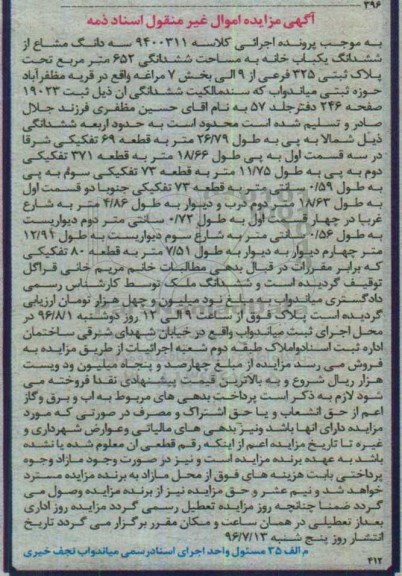 ۳۹۶
آگهی مزایده اموال غیر منقول اسناد ذمه
به موجب پرونده اجرائی کلاسه ۹۴۰۰۳۱۱ سه دانگ مشاع از
ششدانگ یکباب خانه به مساحت ششدانگی ۶۵۲ متر مربع تحت
پلاک ثبتی ۳۲۵ فرعی از ۹ الی بخش ۷ مراغه واقع در قریه مظفرآباد
حوزه ثبتی میاندواب که سندمالکیت ششدانگی آن ذیل ثبت ۱۹۰۲۳
صفحه ۲۴۶ دفترجلد ۵۷ به نام آقای حسین مظفری فرزند جلال
صادر و تسلیم شده است محدود است به حدود اربعه ششدانگی
ذیل شمالا به پی به طول ۲۶/۷۹ متر به قطعه ۶۹ تفکیکی شرقا
در سه قسمت اول به پی طول ۱۸/۶۶ متر به قطعه ۳۷۱ تفکیکی
دوم به پی به طول ۱۱/۷۵ متر به قطعه ۷۳ تفکیکی سوم به پی
به طول ۰/۵۹ سانتی متر به قطعه ۷۳ تفکیکی جنوبا دو قسمت اول
به طول ۱۸/۶۳ متر دوم درب و دیوار به طول ۴/۸۶ متر به شارع
غربا در چهار قسمت اول به طول ۰/۷۲ سانتی متر دوم دیواریست
به طول ۰/۵۶ سانتی متر به شارع سوم دیواریست به طول ۱۲/۹۴
متر چهارم دیوار به دیوار به طول ۷/۵۱ متر به قطعه ۸۰ تفکیکی
که برابر مقررات در قبال بدهی مطالبات خانم مریم خانی قراگل
توقیف گردیده است و ششدانگ ملک توسط کارشناس رسمی
دادگستری میاندواب به مبلغ نود میلیون و چهل هزار تومان ارزیابی
گردیده است پلاک فوق از ساعت ۹ الی ۱۲ روز دوشنبه ۹۶/۸/۱ در
محل اجرای ثبت میاندواب واقع در خیابان شهدای شرقی ساختمان
اداره ثبت اسنادواملاک طبقه دوم شعبه اجرائیات از طریق مزایده به
فروش می رسد مزایده از مبلغ چهارصد و پنجاه میلیون ودویست
هزار ریال شروع و به بالاترین قیمت پیشنهادی نقدا فروخته می
شود لازم به ذکر است پرداخت بدهی های مربوط به آب و برق وگاز
اعم از حق انشعاب و یا حق اشتراک و مصرف در صورتی که مورد
مزایده دارای آنها باشد ونیز بدهی های مالیاتی وعوارض شهرداری و
غیره تا تاریخ مزایده اعم از اینکه رقم قطعی آن معلوم شده یا نشده
باشد به عهده برنده مزایده است و نیز در صورت وجود مازاد وجوه
پرداختی بابت هزینه های فوق از محل مازاد به برنده مزایده مسترد
خواهد شد و نیم عشر و حق مزایده نیز از برنده مزایده وصول می
گردد ضمنا چنانچه روز مزایده تعطیل رسمی گردد مزایده روز اداری
بعداز تعطیلی در همان ساعت و مکان مقرر برگزار می گردد تاریخ
انتشار روز پنج شنبه ۹۶/۷/۱۳
م الف ۳۵ مسئول واحد اجرای اسنادرسمی میاندواب نجف خیری
۴۱۲